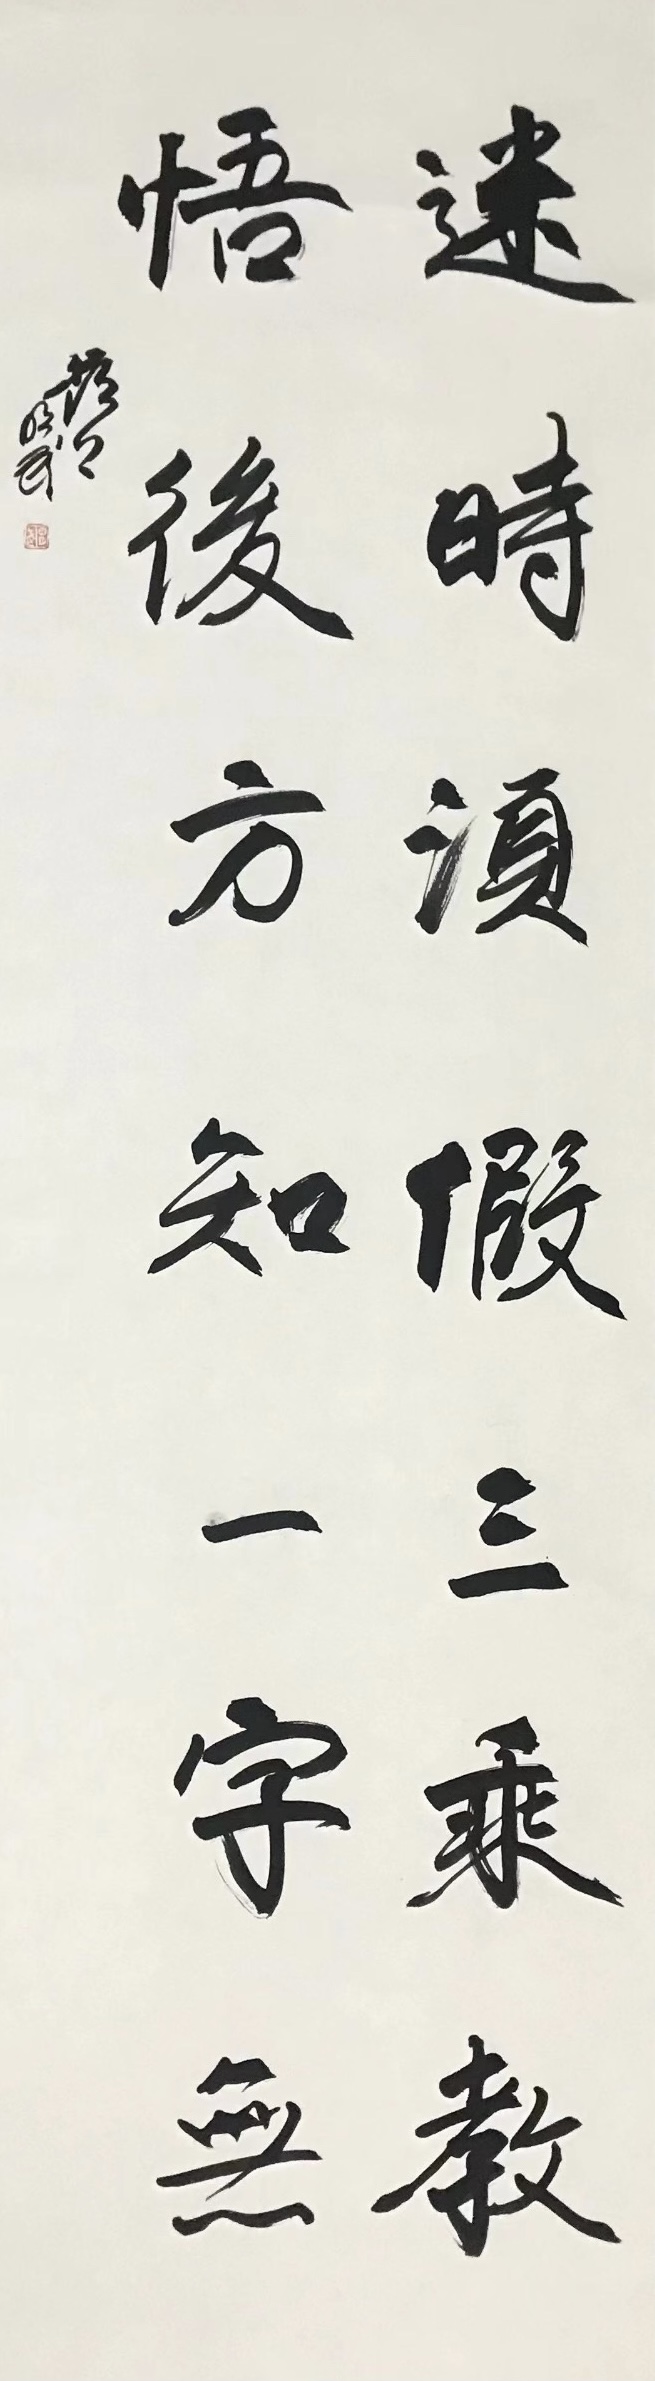 迷時須假三乘教
悟後方知一字無